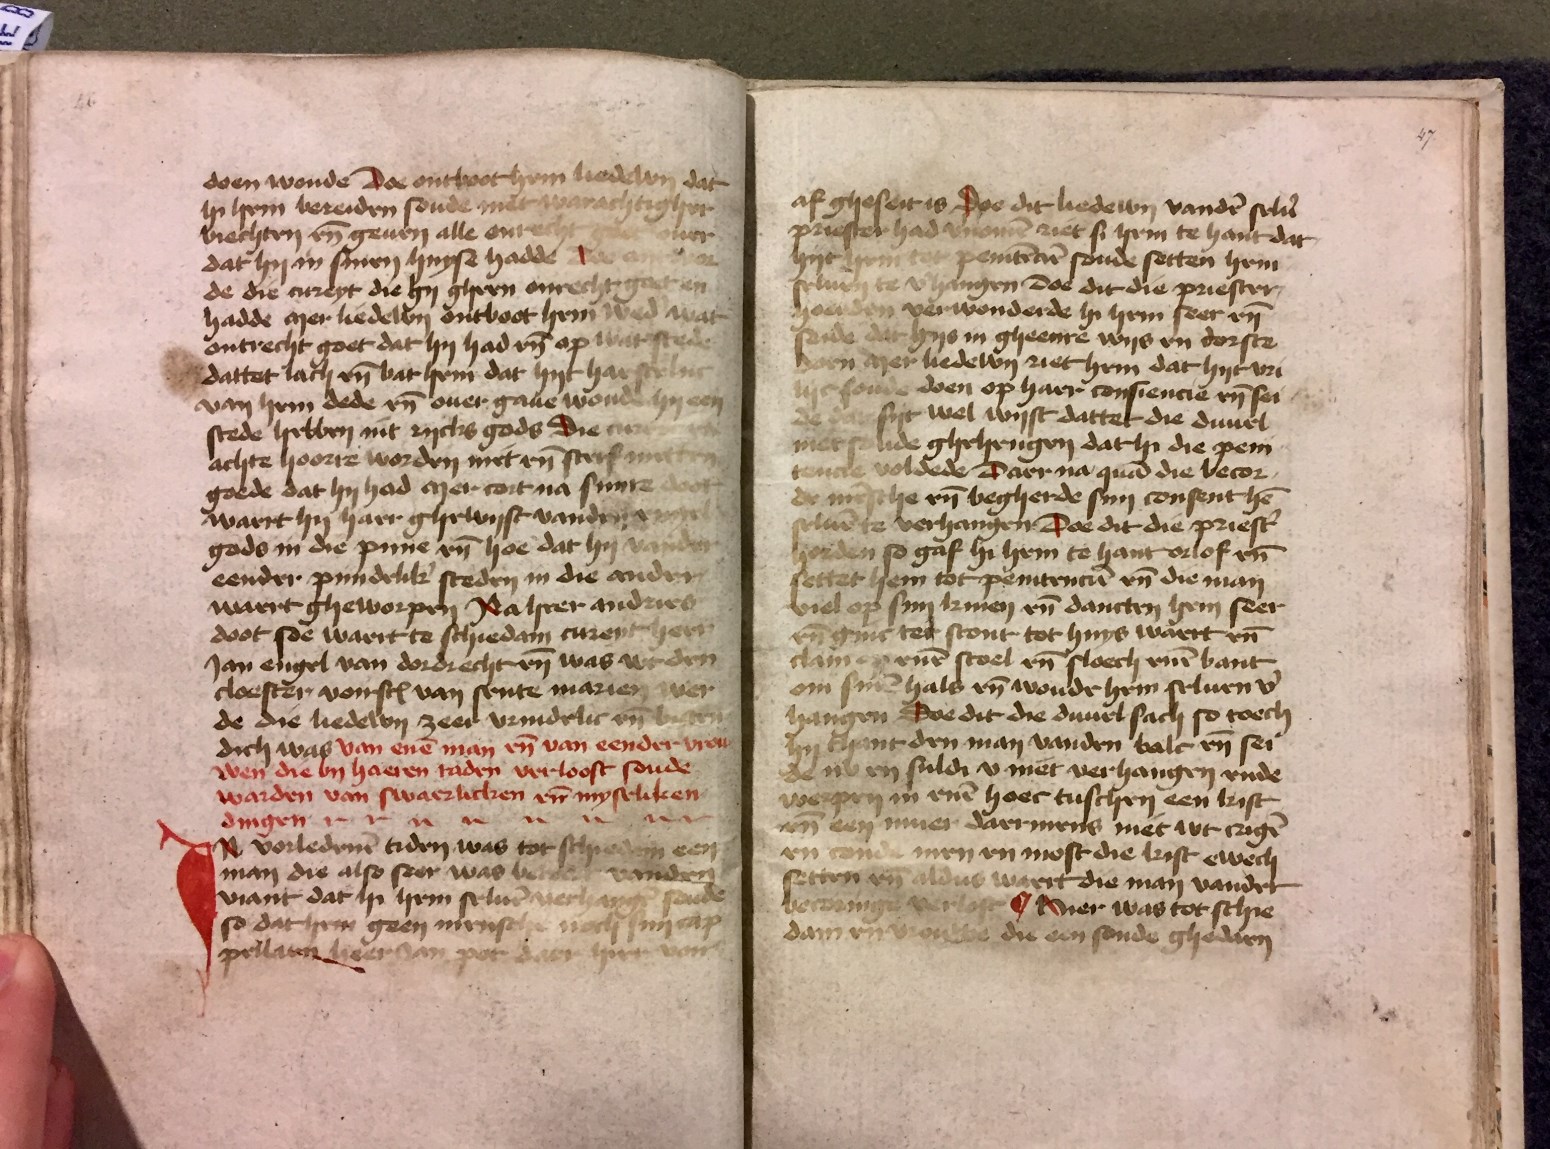 46
doen woude Doe ontboot hem liedewy dat
hi hem bereiden soude met warachtigher
biechten eñ geuen alle onrecht goet ouer
dat hy in sinen huyse hadde
de die cureyt die hy gheen onrecht goet en
hadde Mer liedewy ontboot hem wed' wat
ontrecht goet dat hy had eñ op wat stede
dattet lach eñ bat hem dat hyt haestelic
van hem dede eñ ouer gaue woude hy een
stede hebben int rycke gods Die
achte hoorre worden niet eñ sterf metten
goede dat hy had Mer cort na sinre doot
wart hy haer ghewyst vanden engel
gods in die pine eñ hoe dat hy vander
eender pundelik' steden in die ander
waert gheworpen Na heer andries
doot soe waert te schiedam cureyt heer
Jan engel van dordrecht eñ was wt den
cloester van sente marien wer
de die liedewy zeer vrindelic eñ
dich was van enē man eñ van eender vrou
wen die by haeren tiden verloost soude
warden van swaerlicken eñ myseliken
dingen
IN vorledenē tiden was tot schiedam een
man die also seer was vanden
viant dat hi hem seluē verhangē soude
so dat hem geen mensche noch sijn cap
pellaen heer Jan pot daer hier von
47
af gheseit is Doe dit liedewy vandē selu'
priester had vnomē riet si hem te hant dat
hyt hem tot penitēciē soude setten hem
seluen te v'hangen Doe dit die priester
hoerden verwonderde hi hem seer eñ
seide dat hys in gheenre wys en dorste
doen Mer liedewy riet hem dat hyt vri
lic soude doen op haer consiencie eñ sei
de dat sijt wel wist dattet die duuel
niet soude ghehengen dat hi die peni
tencie voldede Daer na quā die becor
de mēsche eñ begherde sijn consent hē
seluē te verhangen Doe dit die priest'
horden so gaf hi hem te hant orlof eñ
settet hem tot penitenciē eñ die man
viel op sijn knien eñ dancten hem seer
eñ ginc ter stont tot huys waert eñ
clam op enē stoel eñ sloech enē bant
om sinē hals eñ woude hem seluen v'
hangen Doe dit die duuel sach so toech
hy thant den man vanden balc eñ sei
de nv en suldi v niet verhangen ende
werpen in enē hoec tuschen een kist
eñ een muer daermens niet wt crigē
en conde men en most die kist ewech
setten eñ aldus waert die man vander
becoringe verlost Nier was tot schie
dam en vrouwe die een sonde ghedaen